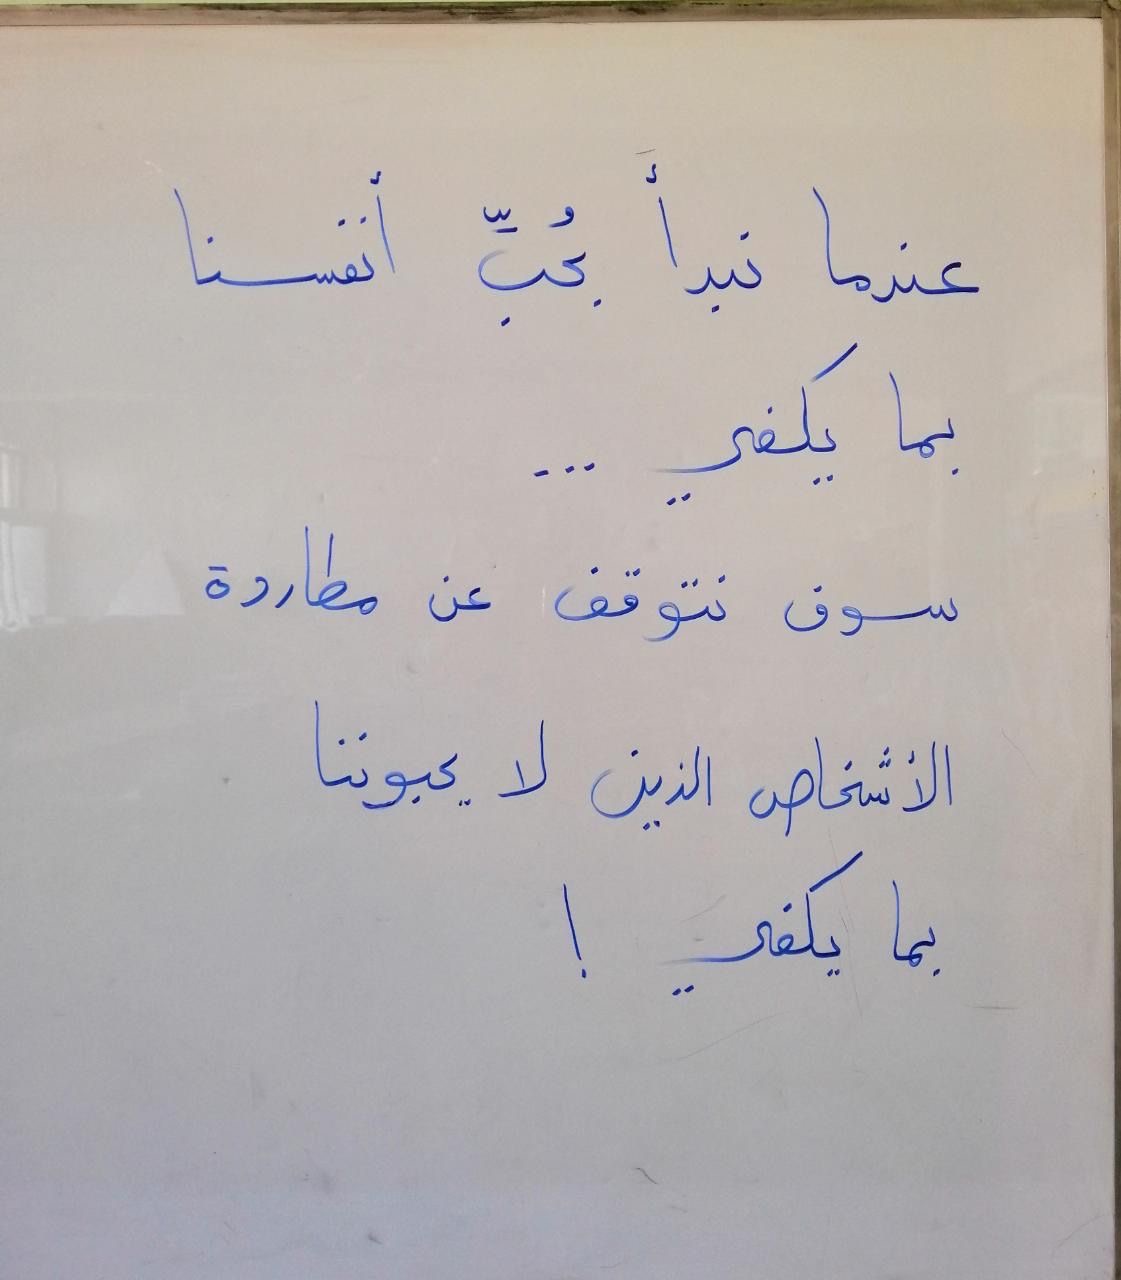 عندما نبدأ بحُبِّ أنفسنا
بما يكفي ...
سوف نتوقف عن مطاردة
الأشخاص الذين لا يحبوننا
بما يكفي !